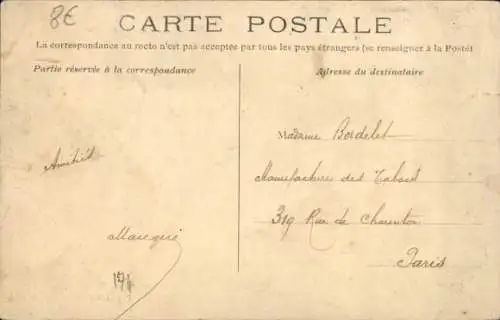 8€
CARTE POSTALE
La correspondance au recto n'est pas acceptée par tous les pays étrangers (se renseigner à la Poste)
Partie réservée à la correspondance
Adresse du destinataire
Madame Bordelet
Amitiés
Manufactures des Tabacs
319 Rue de Charenton
Paris